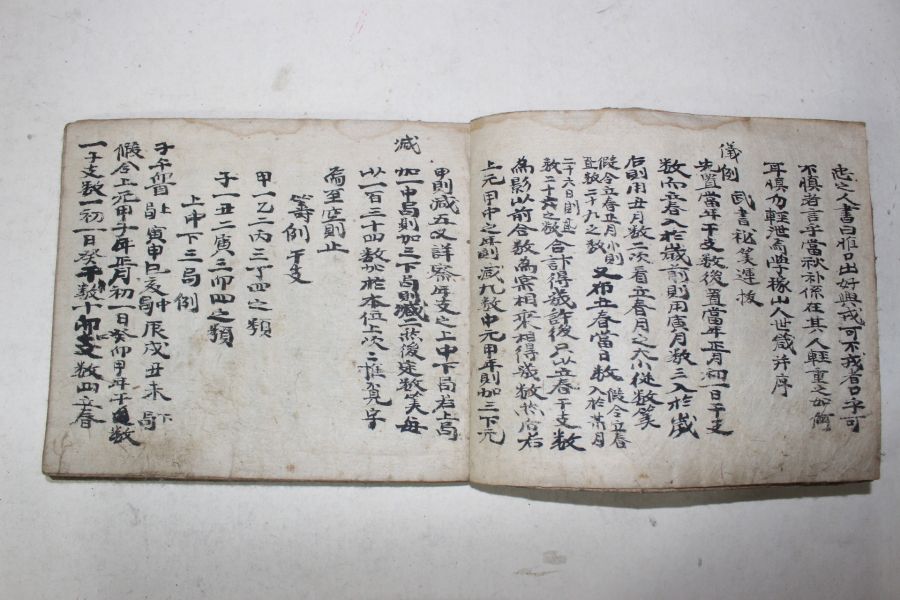 忠之人書曰惟口出好興戎可不戒者口字可
不慎者言乎當秋補係在其人輕重之如何
耳慎勿輕泄
山人世箴并序
武書秘笑連接
儀例
先置當年干支數後置當年正月初一日干支
數而立春入於歲前則用寅月數三入於歲
后則用丑月數二次看立春月之大小從數筭
假令立春正月小則
置數二十九之數
又布立春當日數
假令立春
入於某月
二十六日則
數二十六之數
合計得幾許後只以立春干支數
為影以前合數為案相乘相得幾數於后右
上元甲申之年則減九數中元甲年則加三下元
甲則減五又詳察年支之上中下局若上局
減
加一中局則加三下局則減二然後定數筭每
以一百三十四數於本位上次二推
為至空則止
筭例干支
甲一乙二丙三丁四之類
子一丑二寅三卯四之類
上中下三局例
子午
上局
寅申巳亥
中局
辰戌丑未
下局
假令上元甲子年正月初一日癸卯甲年干數
一子支數一初一日癸干數十卯支數四立春